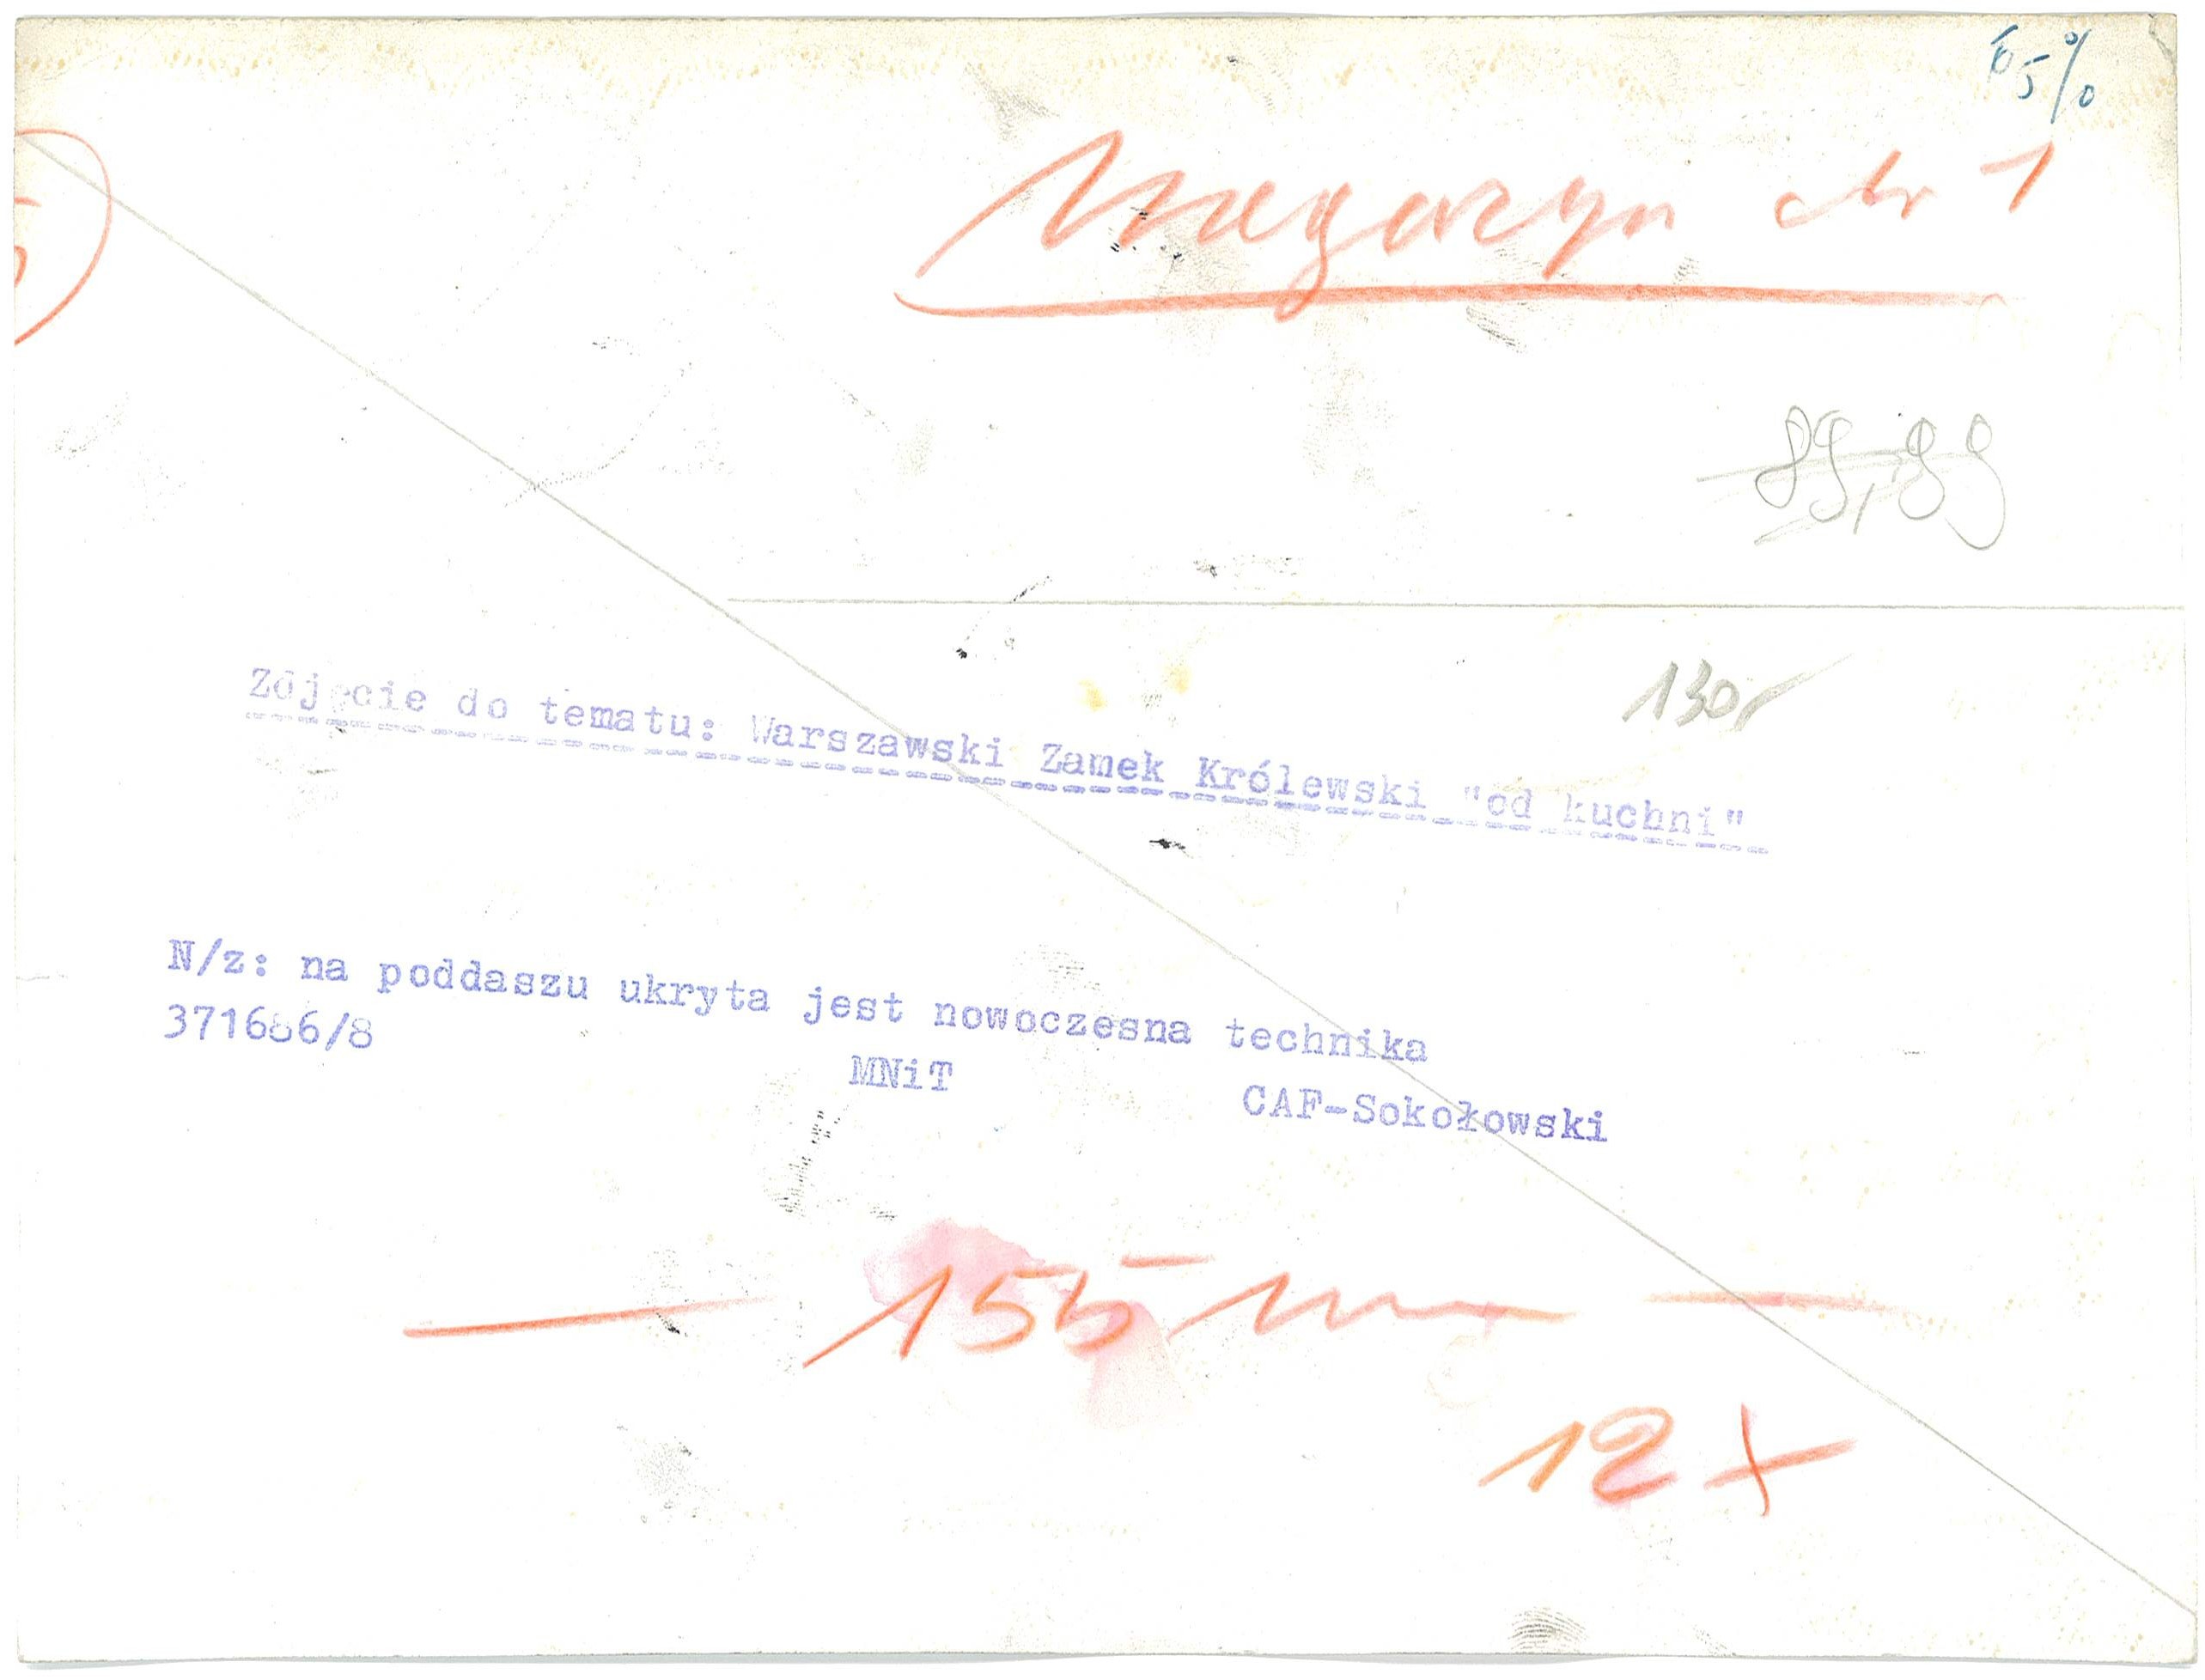 65%
Magazyn nr 1
89,89
130
Zdjęcie do tematu: Warszawski Zamek Królewski "od kuchni"
N/z: na poddaszu ukryta jest nowoczesna technika
371686/8
MNiT
CAF-Sokołowski
155 m
12 x